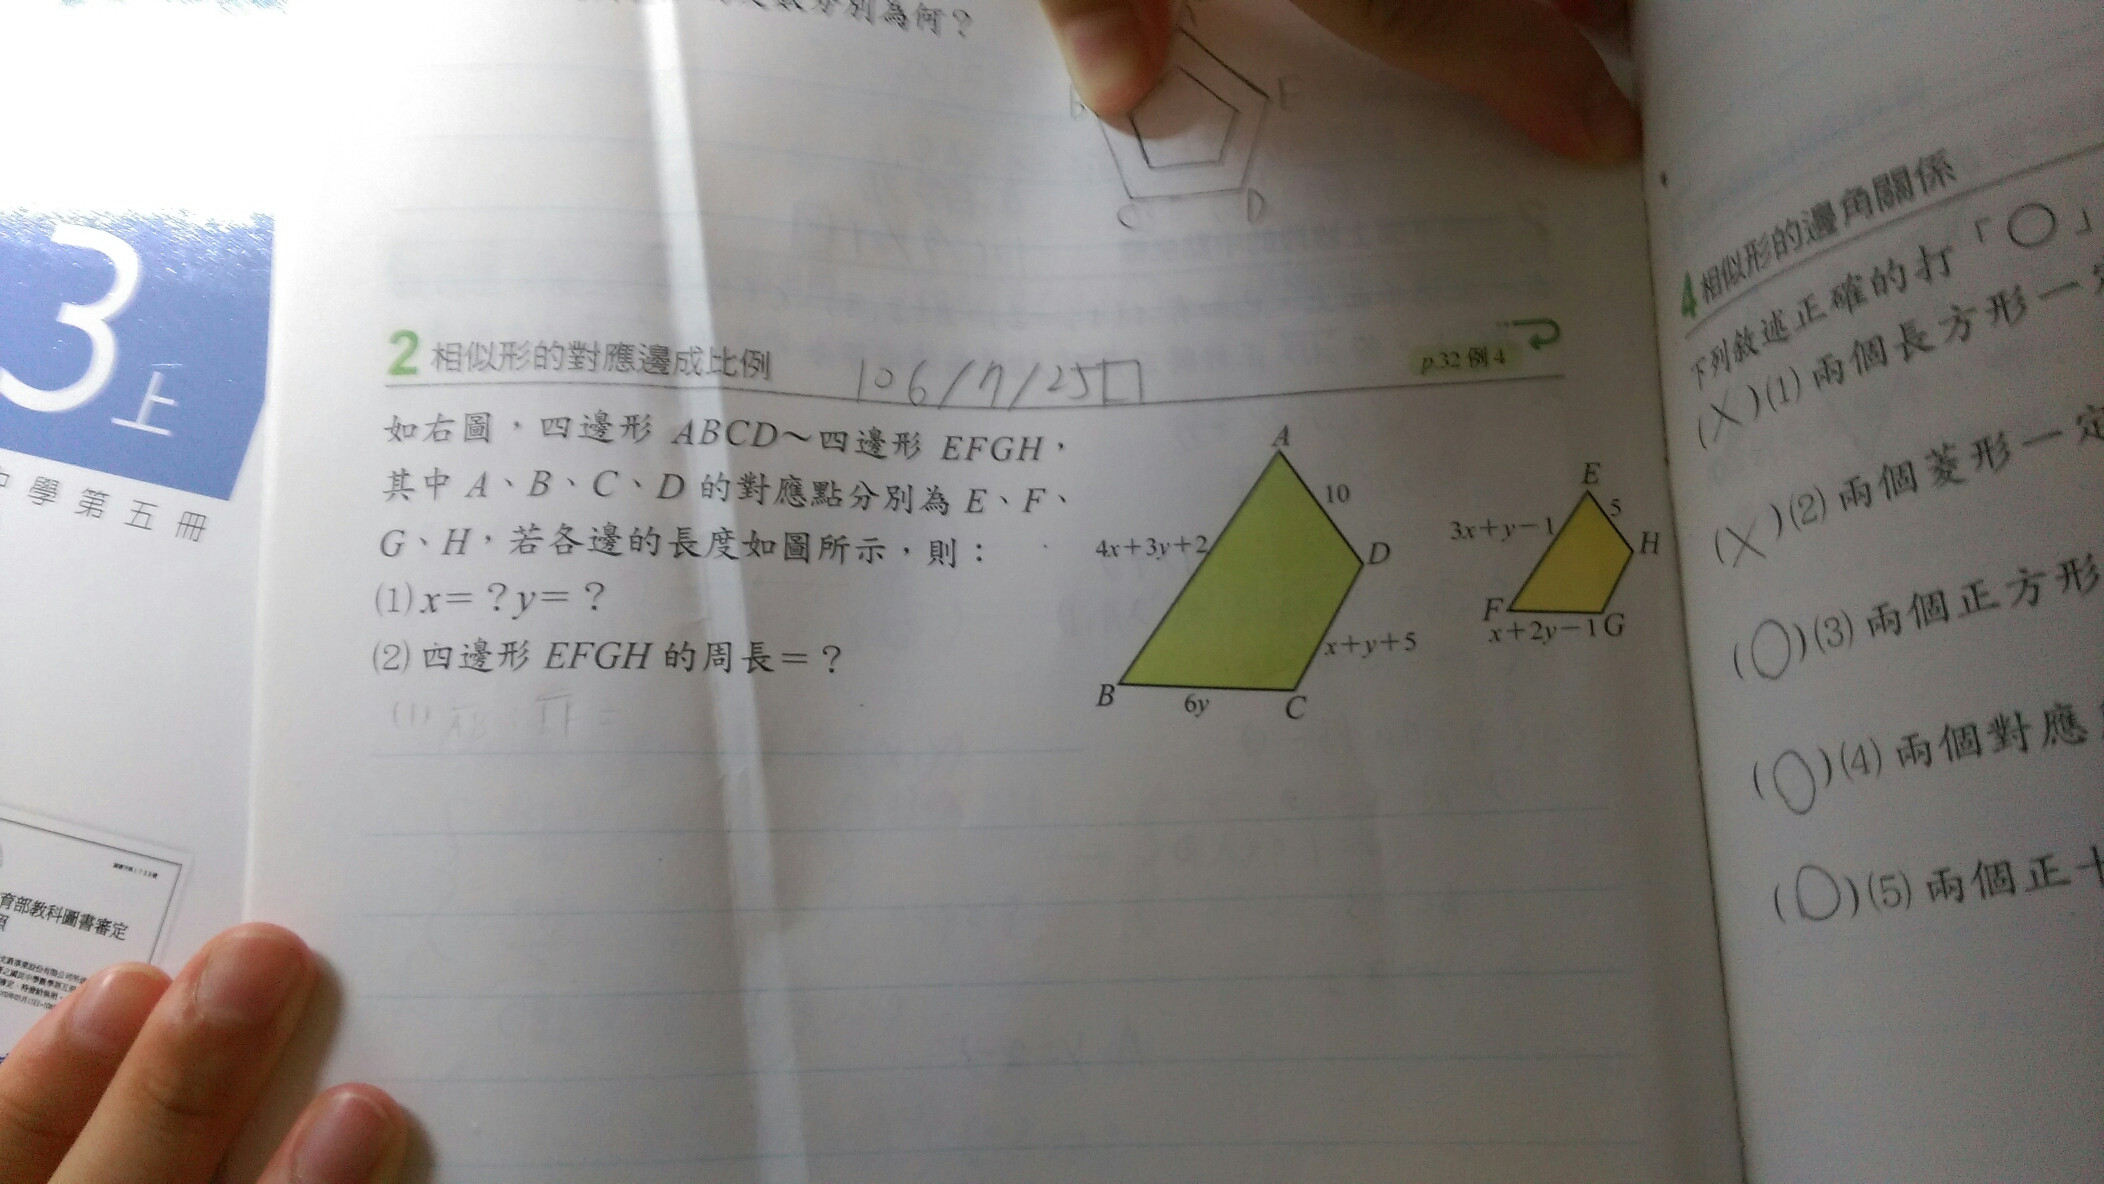 分別為何？
F
C
D
3上
學第五冊
育部教科圖書審定
2 相似形的對應邊成比例
106/7/25口
p.32例4
如右圖，四邊形 ABCD～四邊形 EFGH，
其中 A、B、C、D 的對應點分別為 E、F、
G、H，若各邊的長度如圖所示，則：
(1) x＝？y＝？
(2) 四邊形 EFGH 的周長＝？
(1) AB
A
10
4x+3y+2
D
x+y+5
B
6y
C
E
5
3x+y−1
H
F
x+2y−1
G
4 相似形的邊角關係
下列敘述正確的打「○」
(X)(1) 兩個長方形一
(X)(2) 兩個菱形一定
(○)(3) 兩個正方形
(○)(4) 兩個對應
(○)(5) 兩個正十